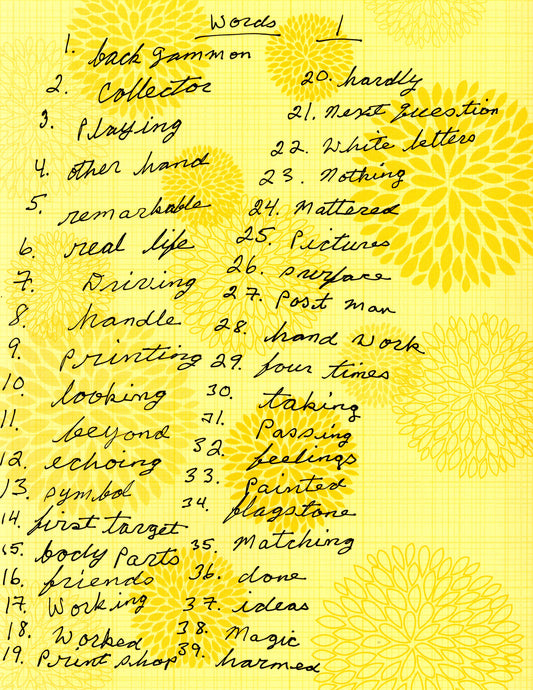 Words 1
1. back gammon
2. Collector
3. Playing
4. other hand
5. remarkable
6. real life
7. Driving
8. handle
9. Printing
10. looking
11. beyond
12. echoing
13. symbol
14. first target
15. body Parts
16. friends
17. Working
18. Worked
19. Print shop
20. hardly
21. Next question
22. White letters
23. Nothing
24. Mattered
25. Pictures
26. surface
27. Post man
28. hand work
29. four times
30. taking
31. Passing
32. feelings
33. Painted
34. flagstone
35. Matching
36. done
37. ideas
38. Magic
39. harmed